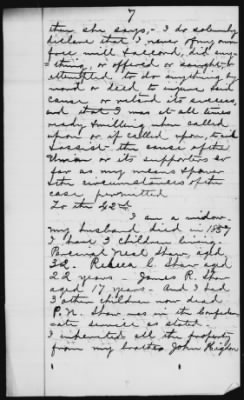 7
then she says,- I do solemnly
declare that I never of my own
free will & accord, did any
thing, or offered or sought, or
attempted to do anything by
word or deed to injure said
cause or retard its success,
and that I was at all times
ready & willing when called
upon or if called upon, to
assist the cause of the
Union or its supporters so
far as my means & power
& the circumstances of the
case permitted
To the 42d
I am a widow.
my husband died in 1857
I have 3 children living.
Percival Neal Shaw, aged
32. Rebecca C. Shaw aged
22 years - James R. Shaw
aged 17 years. And I had
3 other children now dead
P. N. Shaw was in the Confeder
cate service as stated.
I inherited all the property
from my brother John